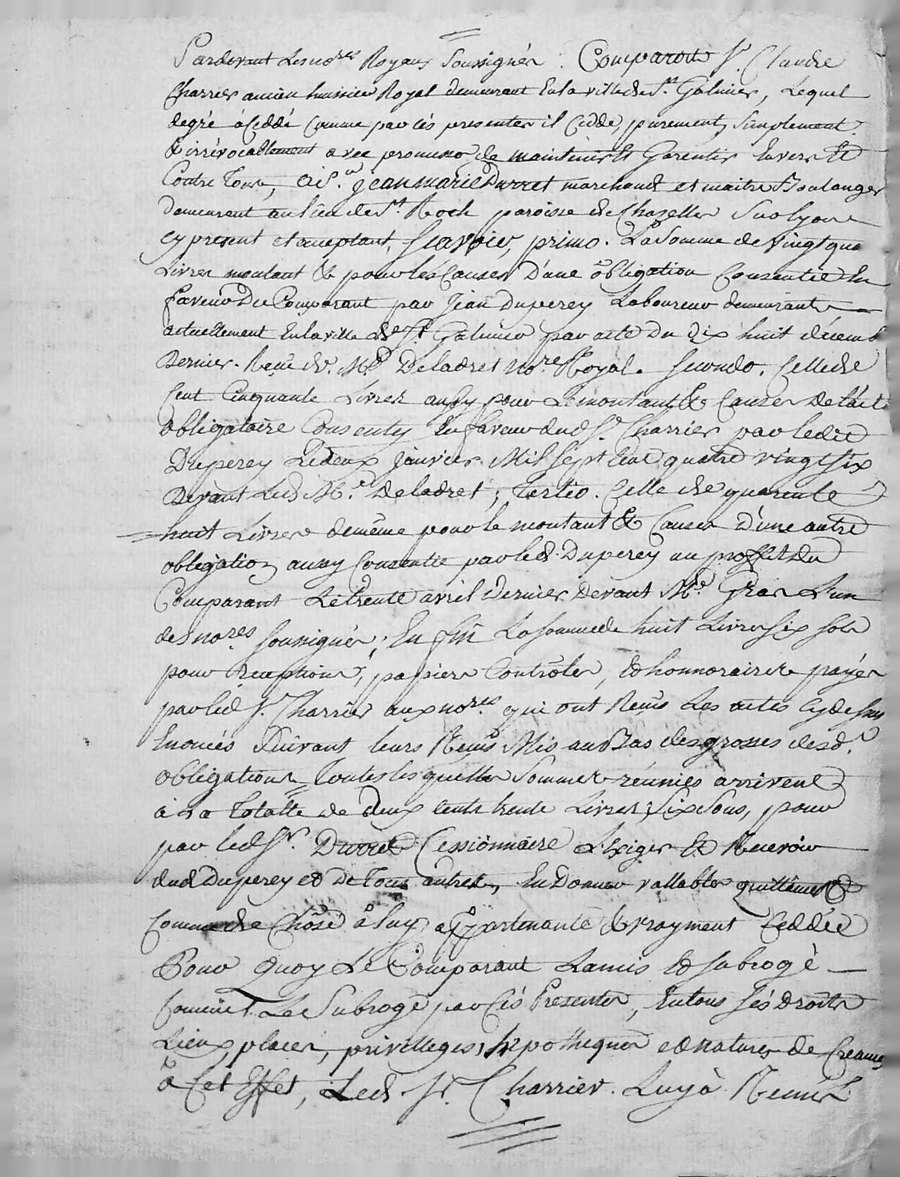 Pardevant Les no.res Royaux Soussignés : Comparoit S.r Claude
Charrier ancien huissier Royal demeurant En la ville de S.t Galmier, Lequel
degré à Ceddé comme par cés presentes il Cedde, purement, Simplement
& irrévocablement avec promesse de maintenir & Garentir Envers Et
Contre Tous, a S.r jean marie Durret marchand et maitre Boulanger
demeurant au lieu de S.t Roch paroisse de Chazelles Sur lyon
cy present et acceptant, Scavoir, primo. La Somme de vingt qua
Livres montant & pour les Causes D'une obligation Consentie En
faveur Du Comparant par Jean Duperey Laboureur demeurant
actuellement En la ville de S.t Galmier par acte du dix huit decemb
Dernier Reçu de M.e Deladret no.re Royal. Secundo. Celle de
Cent Cinquante Livres aussy pour Le montant & Causes De l'acte
Obligatoire Consenty En faveur dud S.r Charrier par ledit
Duperey Le deux Janvier Mil Sept Cent quatre vingt Six
Devant Led M.e Deladret ; Tertio. Celle de quarente
huit Livres de même pour le montant & Causes d'une autre
obligation aussy Consentie par led. Duperey au proffit du
Comparant Le trente avril Dernier devant M.e Gras L'un
des no.res Soussignés ; En fin La Somme de huit Livres Six sols
pour Receptions, papiers Contrôles, & honnoraires payés
par led S.r Charrier aux no.res qui ont Reçus Les actes cy dessus
Enoncés Suivant leurs Reçus Mis au Bas des grosses desd.
obligations Toutes les quelles Sommes réunies arrivent
à La Totalle de Deux Cents trente Livres Six Sous, pour
par led S.r Durret Cessionnaire L'Exiger & Recevoir
dud Duperey et de Tous autres, En Donner vallables quittances
comme de Chose à Luy appartenante & vrayment Ceddée
Pour Quoy Le Comparant La mis & subrogé
Comme Le Subroge par Cés Presentes, En tous Sés droits
Lieux, places, privilleges, hÿpotheques et natures de Creances
à Cet Effet, Led. S.r Charrier. Luy à Remis